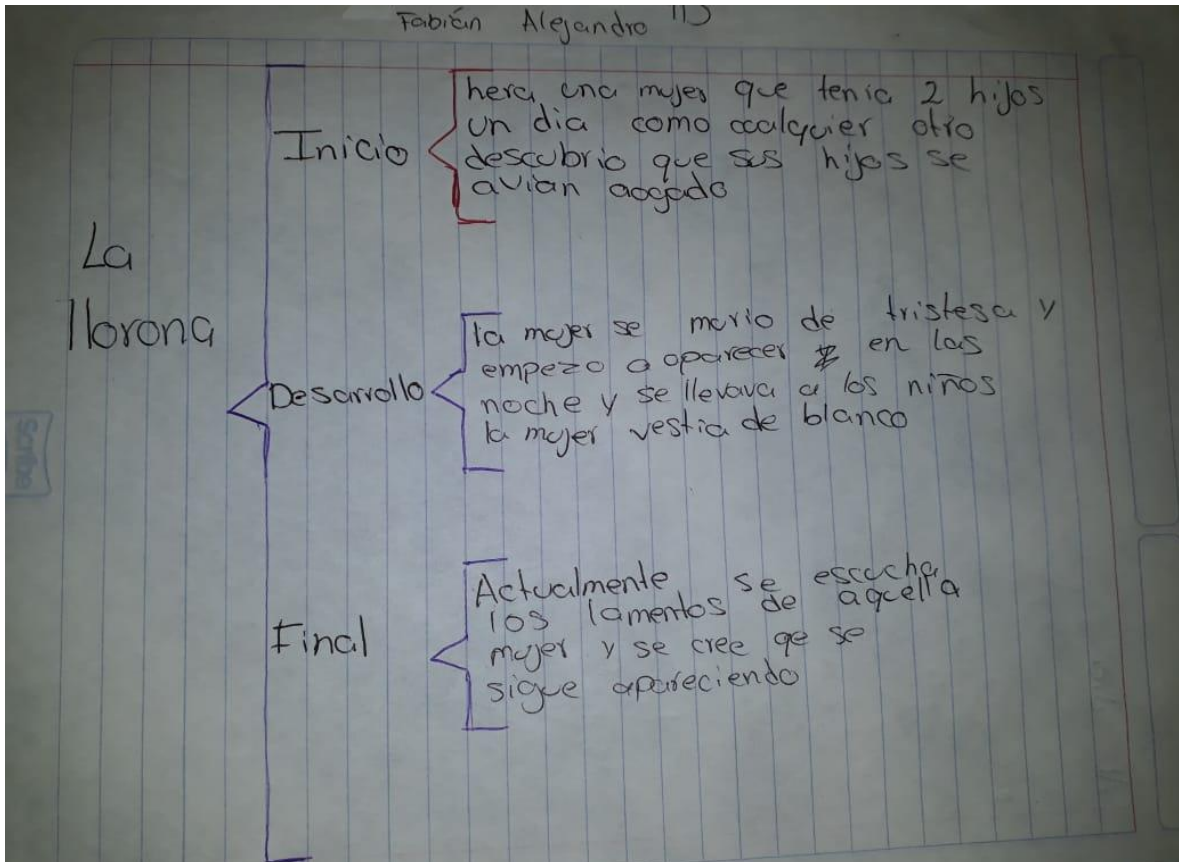 Fabián Alejandro
La
llorona
Inicio
hera una mujer que tenia 2 hijos
un dia como cualquier otro
descubrio que sus hijos se
avian aogado
Desarrollo
la mujer se murio de tristesa y
empezo a aparecer en las
noche y se llevava a los niños
la mujer vestia de blanco
Final
Actualmente se escucha
los lamentos de aquella
mujer y se cree qe se
sigue apareciendo
Scribe